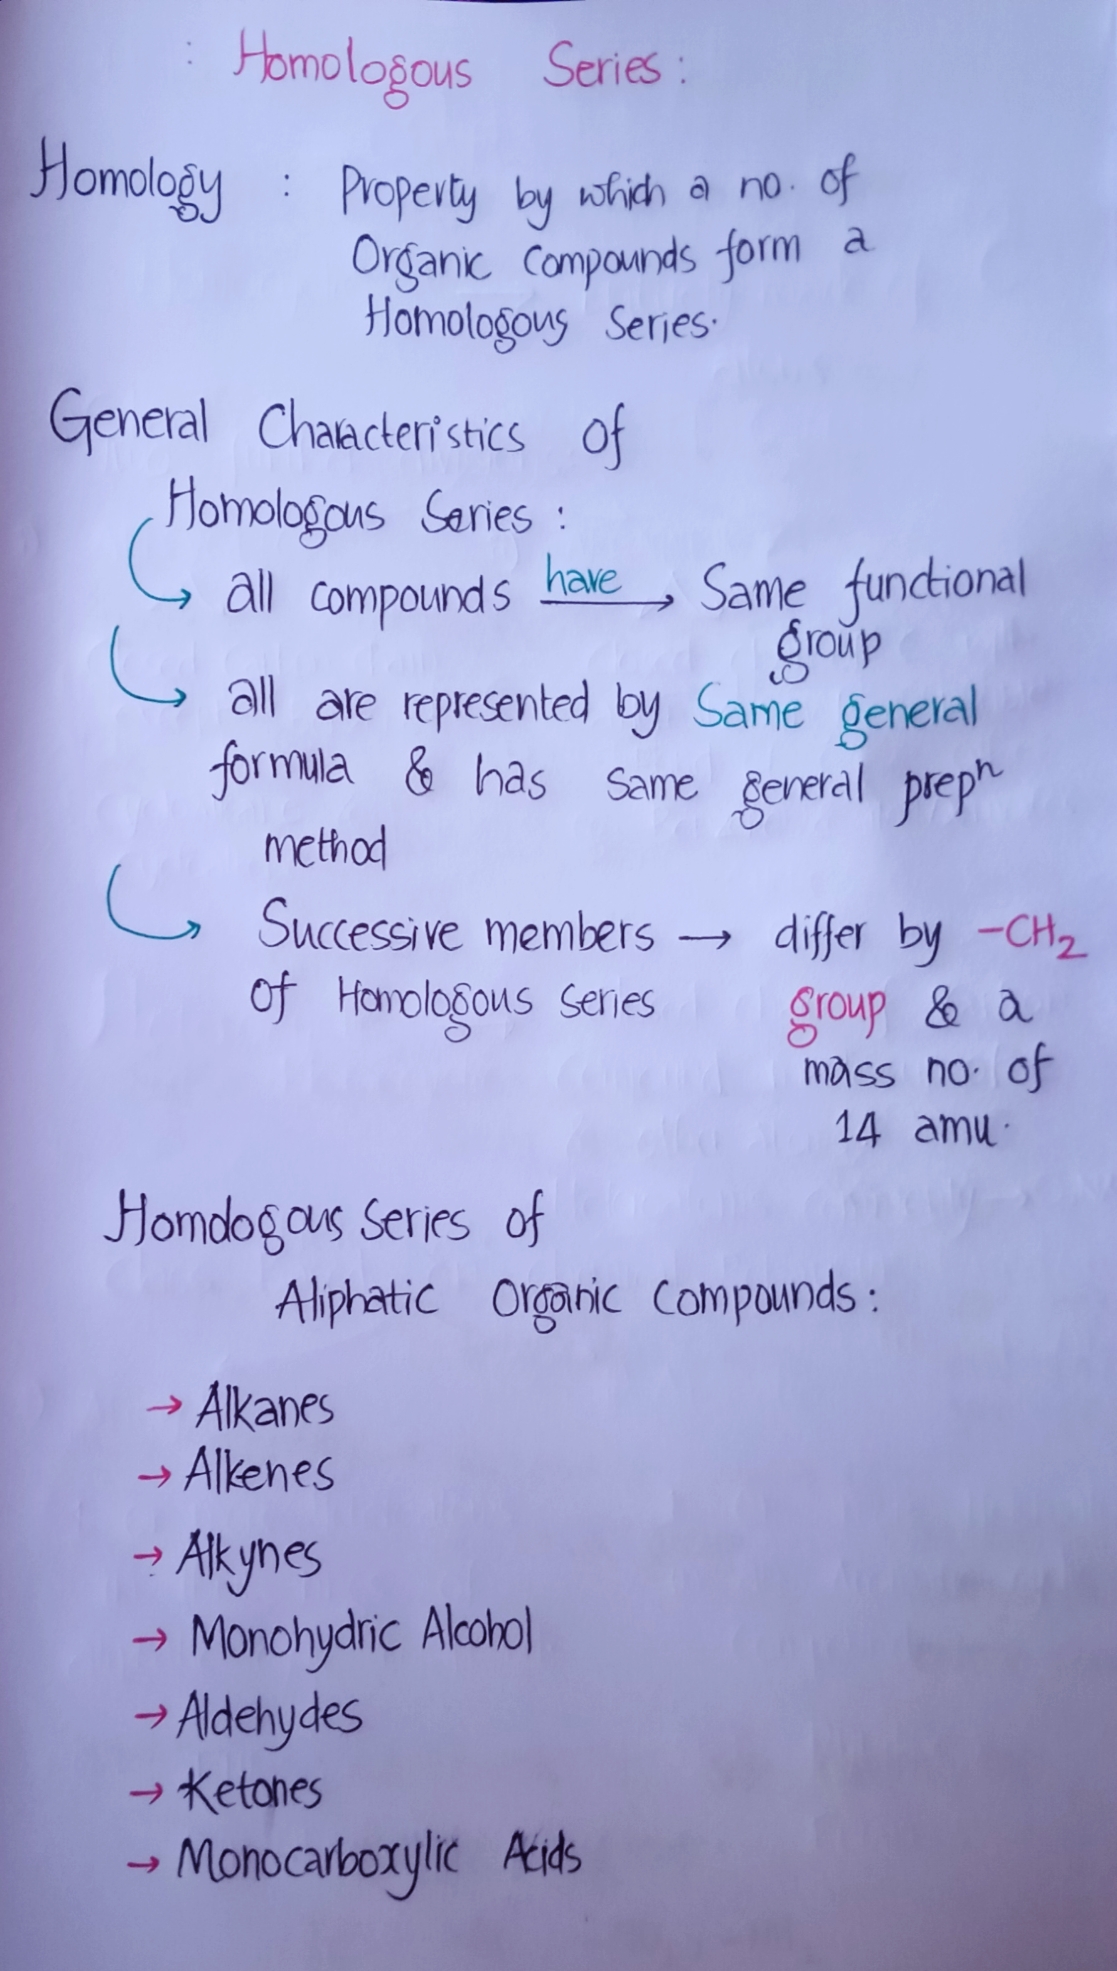 : Homologous Series :
Homology : Property by which a no. of
Organic Compounds form a
Homologous Series.
General Characteristics of
Homologous Series :
all compounds have → Same functional
group
all are represented by Same general
formula & has same general prepⁿ
method
Successive members → differ by -CH₂
of Homologous series group & a
mass no. of
14 amu.
Homologous Series of
Aliphatic Organic Compounds :
→ Alkanes
→ Alkenes
→ Alkynes
→ Monohydric Alcohol
→ Aldehydes
→ Ketones
→ Monocarboxylic Acids